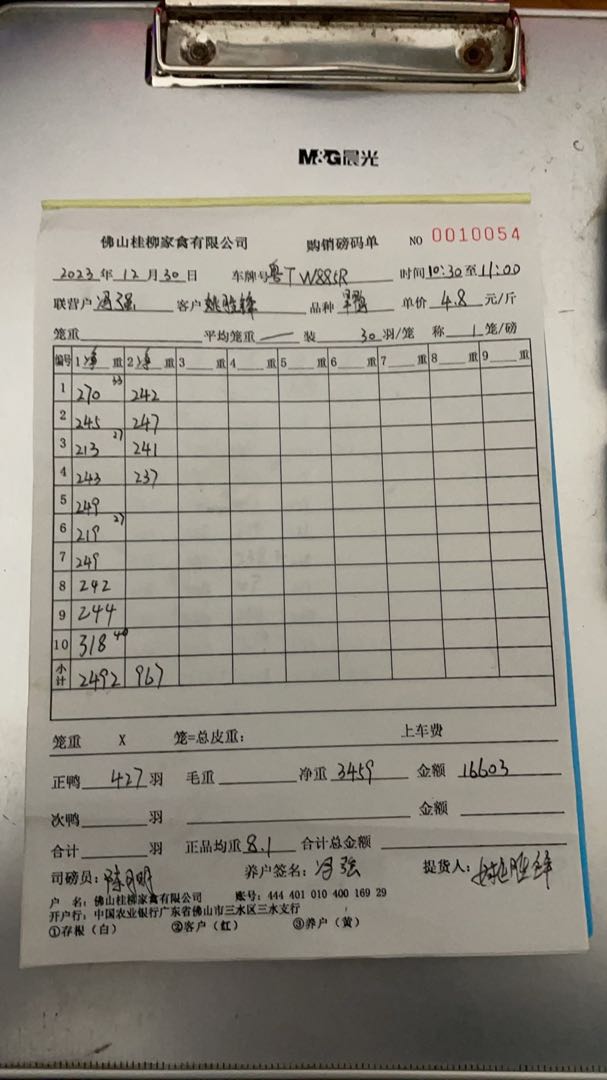 M&G晨光
佛山桂柳家禽有限公司 购销磅码单 NO 0010054
2023年12月30日 车牌号粤TW885R 时间10:30至11:00
联营户冯强 客户姚胜锋 品种 单价4.8元/斤
笼重 平均笼重— 装30羽/笼 称1笼/磅
编号 1净重 2净重 3重 4重 5重 6重 7重 8重 9重
1 270 33 242
2 245 247
3 213 27 241
4 243 237
5 249
6 219 27
7 249
8 242
9 244
10 318 40
小计 2492 967
笼重 X 笼=总皮重: 上车费
正鸭427羽 毛重 净重3459 金额16603
次鸭 羽 金额
合计 羽 正品均重8.1 合计总金额
司磅员: 养户签名:冯强 提货人:姚胜锋
户 名:佛山桂柳家禽有限公司 账号:444 401 010 400 169 29
开户行:中国农业银行广东省佛山市三水区三水支行
①存根(白) ②客户(红) ③养户(黄)